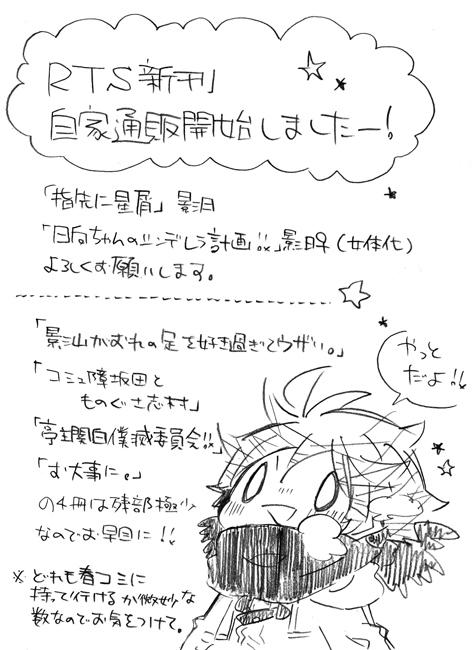 RTS新刊
自家通販開始しましたー!
「指先に星屑」影日
「日向ちゃんのシンデレラ計画!!」影日♀(女体化)
よろしくお願いします。
「影山がおれの足を好き過ぎてウザい。」
「コミュ障坂田と
ものぐさ志村」
「亭主関白撲滅委員会!!」
「お大事に。」
の4冊は残部極少
なのでお早目に!!
※どれも春コミに
持って行けるか微妙な
数なのでお気をつけて。
やっと
だよ!!